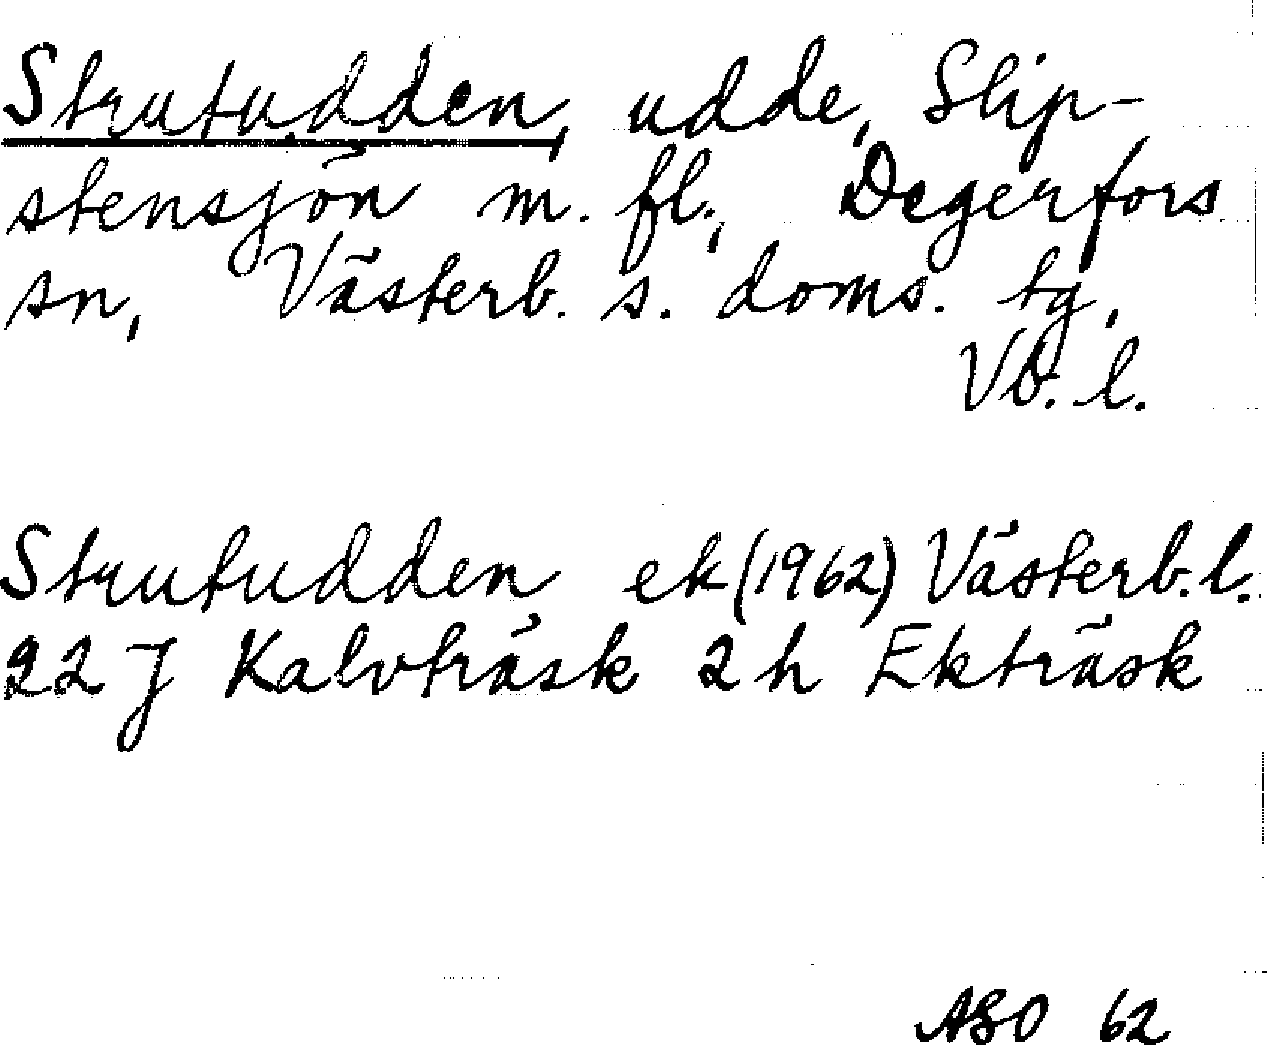 Strutudden, udde, Slip-
stensjön m. fl., Degerfors
sn, Västerb. s. doms. tg,
Vb. l.
Strutudden ek (1962) Västerb. l.
22 J Kalvträsk 2 h Ekträsk
ASO 62